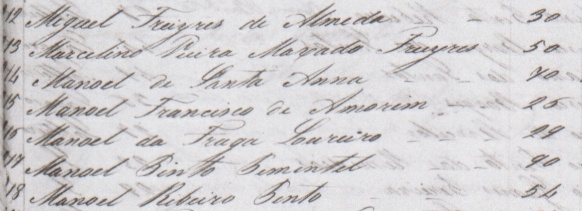 12 Miguel Freyres de Almeda - 30
13 Marcelino Vieira Maxado Freyres 50
14 Manoel de Santa Anna 70
15 Manoel Francisco de Amorim - 25
16 Manoel da Fraga Loureiro 29
17 Manoel Pinto Pimentel 90
18 Manoel Ribeiro Pinto - 54